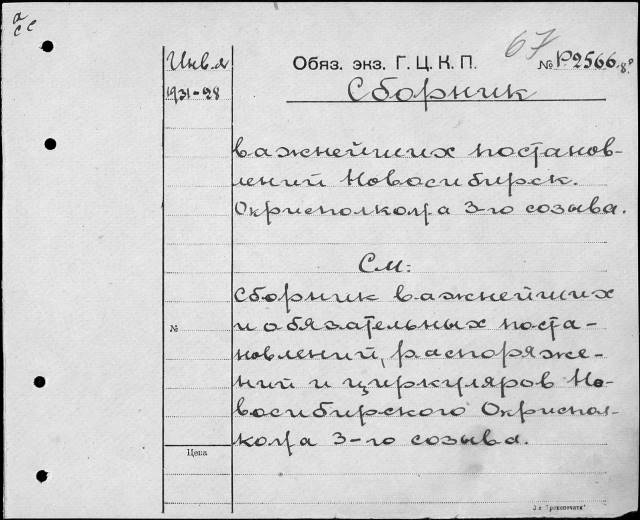 а
сс
Инв. д
1931-28
Обяз. экз. Г. Ц. К. П.
67
№ Р.2566 /8°
Сборник
важнейших постанов-
лений Новосибирск.
Окрисполкома 3-го созыва.
См:
сборник важнейших
и обязательных поста-
новлений, распоряже-
ний и циркуляров Но-
восибирского Окриспол-
кома 3-го созыва.
№
Цена